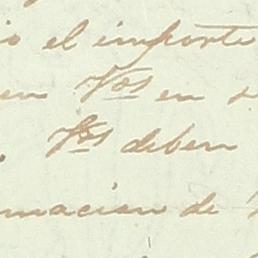 o el importe
en Vos en s
Vos deben
macion de